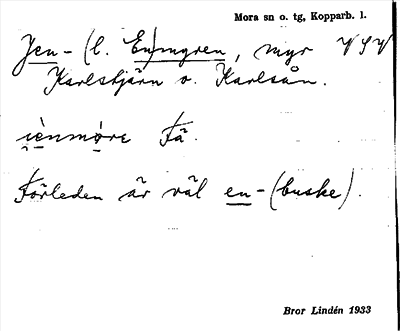 Mora sn o. tg, Kopparb. l.
Jen- (l. En)myren, myr VSV
Karlstjärn o. Karlsån.
i̯ènmo̤re Få.
Förleden är väl en-(buske).
Bror Lindén 1933